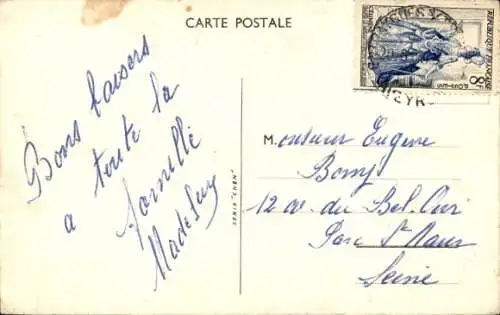 CARTE POSTALE
Bons baisers
a toute la
famille
REPUBLIQUE FRANÇAISE
8F
SERIE "CHEN"
Monsieur Eugène
Bony
12 av. du Bel-Air
Parc St Maur
Seine